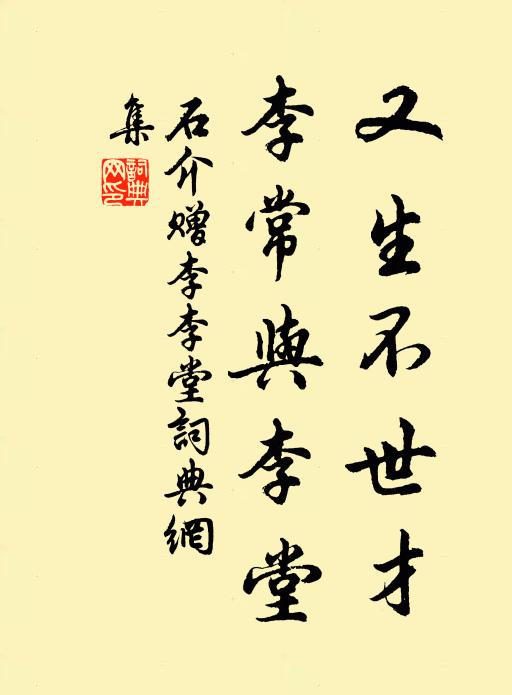 又生不世才
李常與李堂
石介贈李李堂詞典網
集
詞典
网印